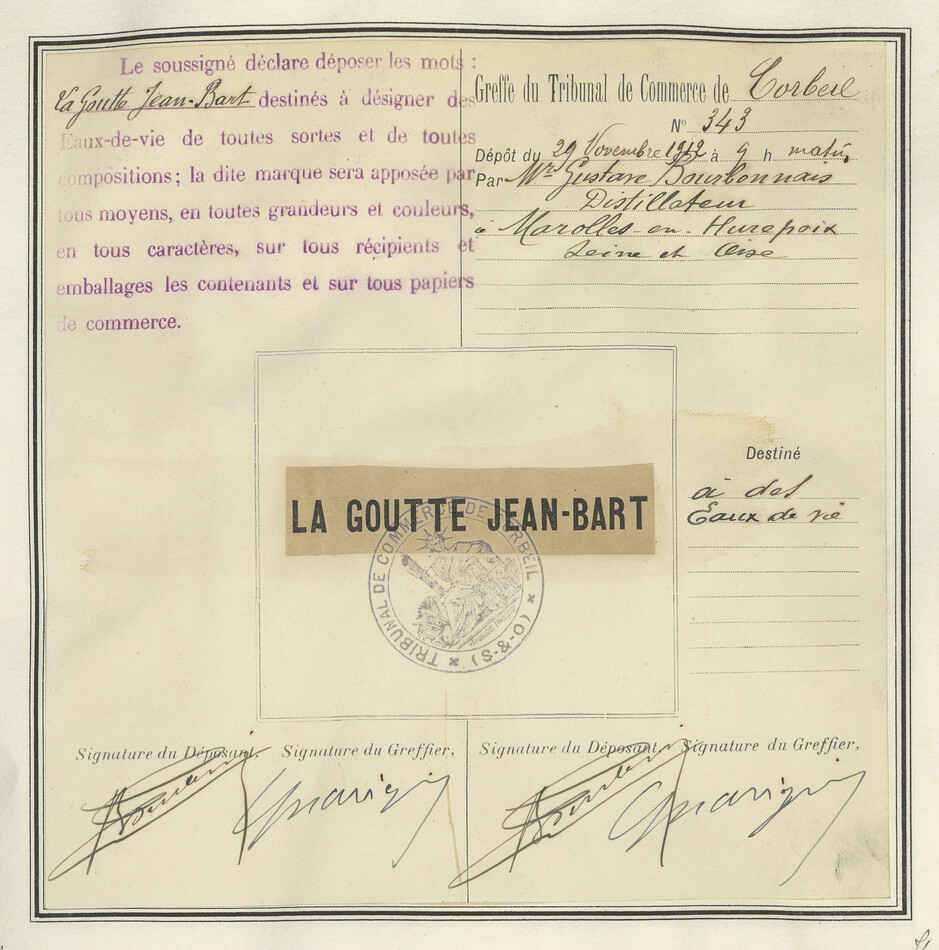 Le soussigné déclare déposer les mots :
La Goutte Jean-Bart destinés à désigner des
Eaux-de-vie de toutes sortes et de toutes
compositions; la dite marque sera apposée par
tous moyens, en toutes grandeurs et couleurs,
en tous caractères, sur tous récipients et
emballages les contenants et sur tous papiers
de commerce.
Greffe du Tribunal de Commerce de Corbeil
N° 343
Dépôt du 29 Novembre 1912 à 9 h matin
Par Mr Gustave Bourbonnais
Distillateur
à Marolles-en-Hurepoix
Seine et Oise
LA GOUTTE JEAN-BART
TRIBUNAL DE COMMERCE DE CORBEIL * (O-&-S) *
Destiné
à des
Eaux de vie
Signature du Déposant. Signature du Greffier,
Signature du Déposant. Signature du Greffier,